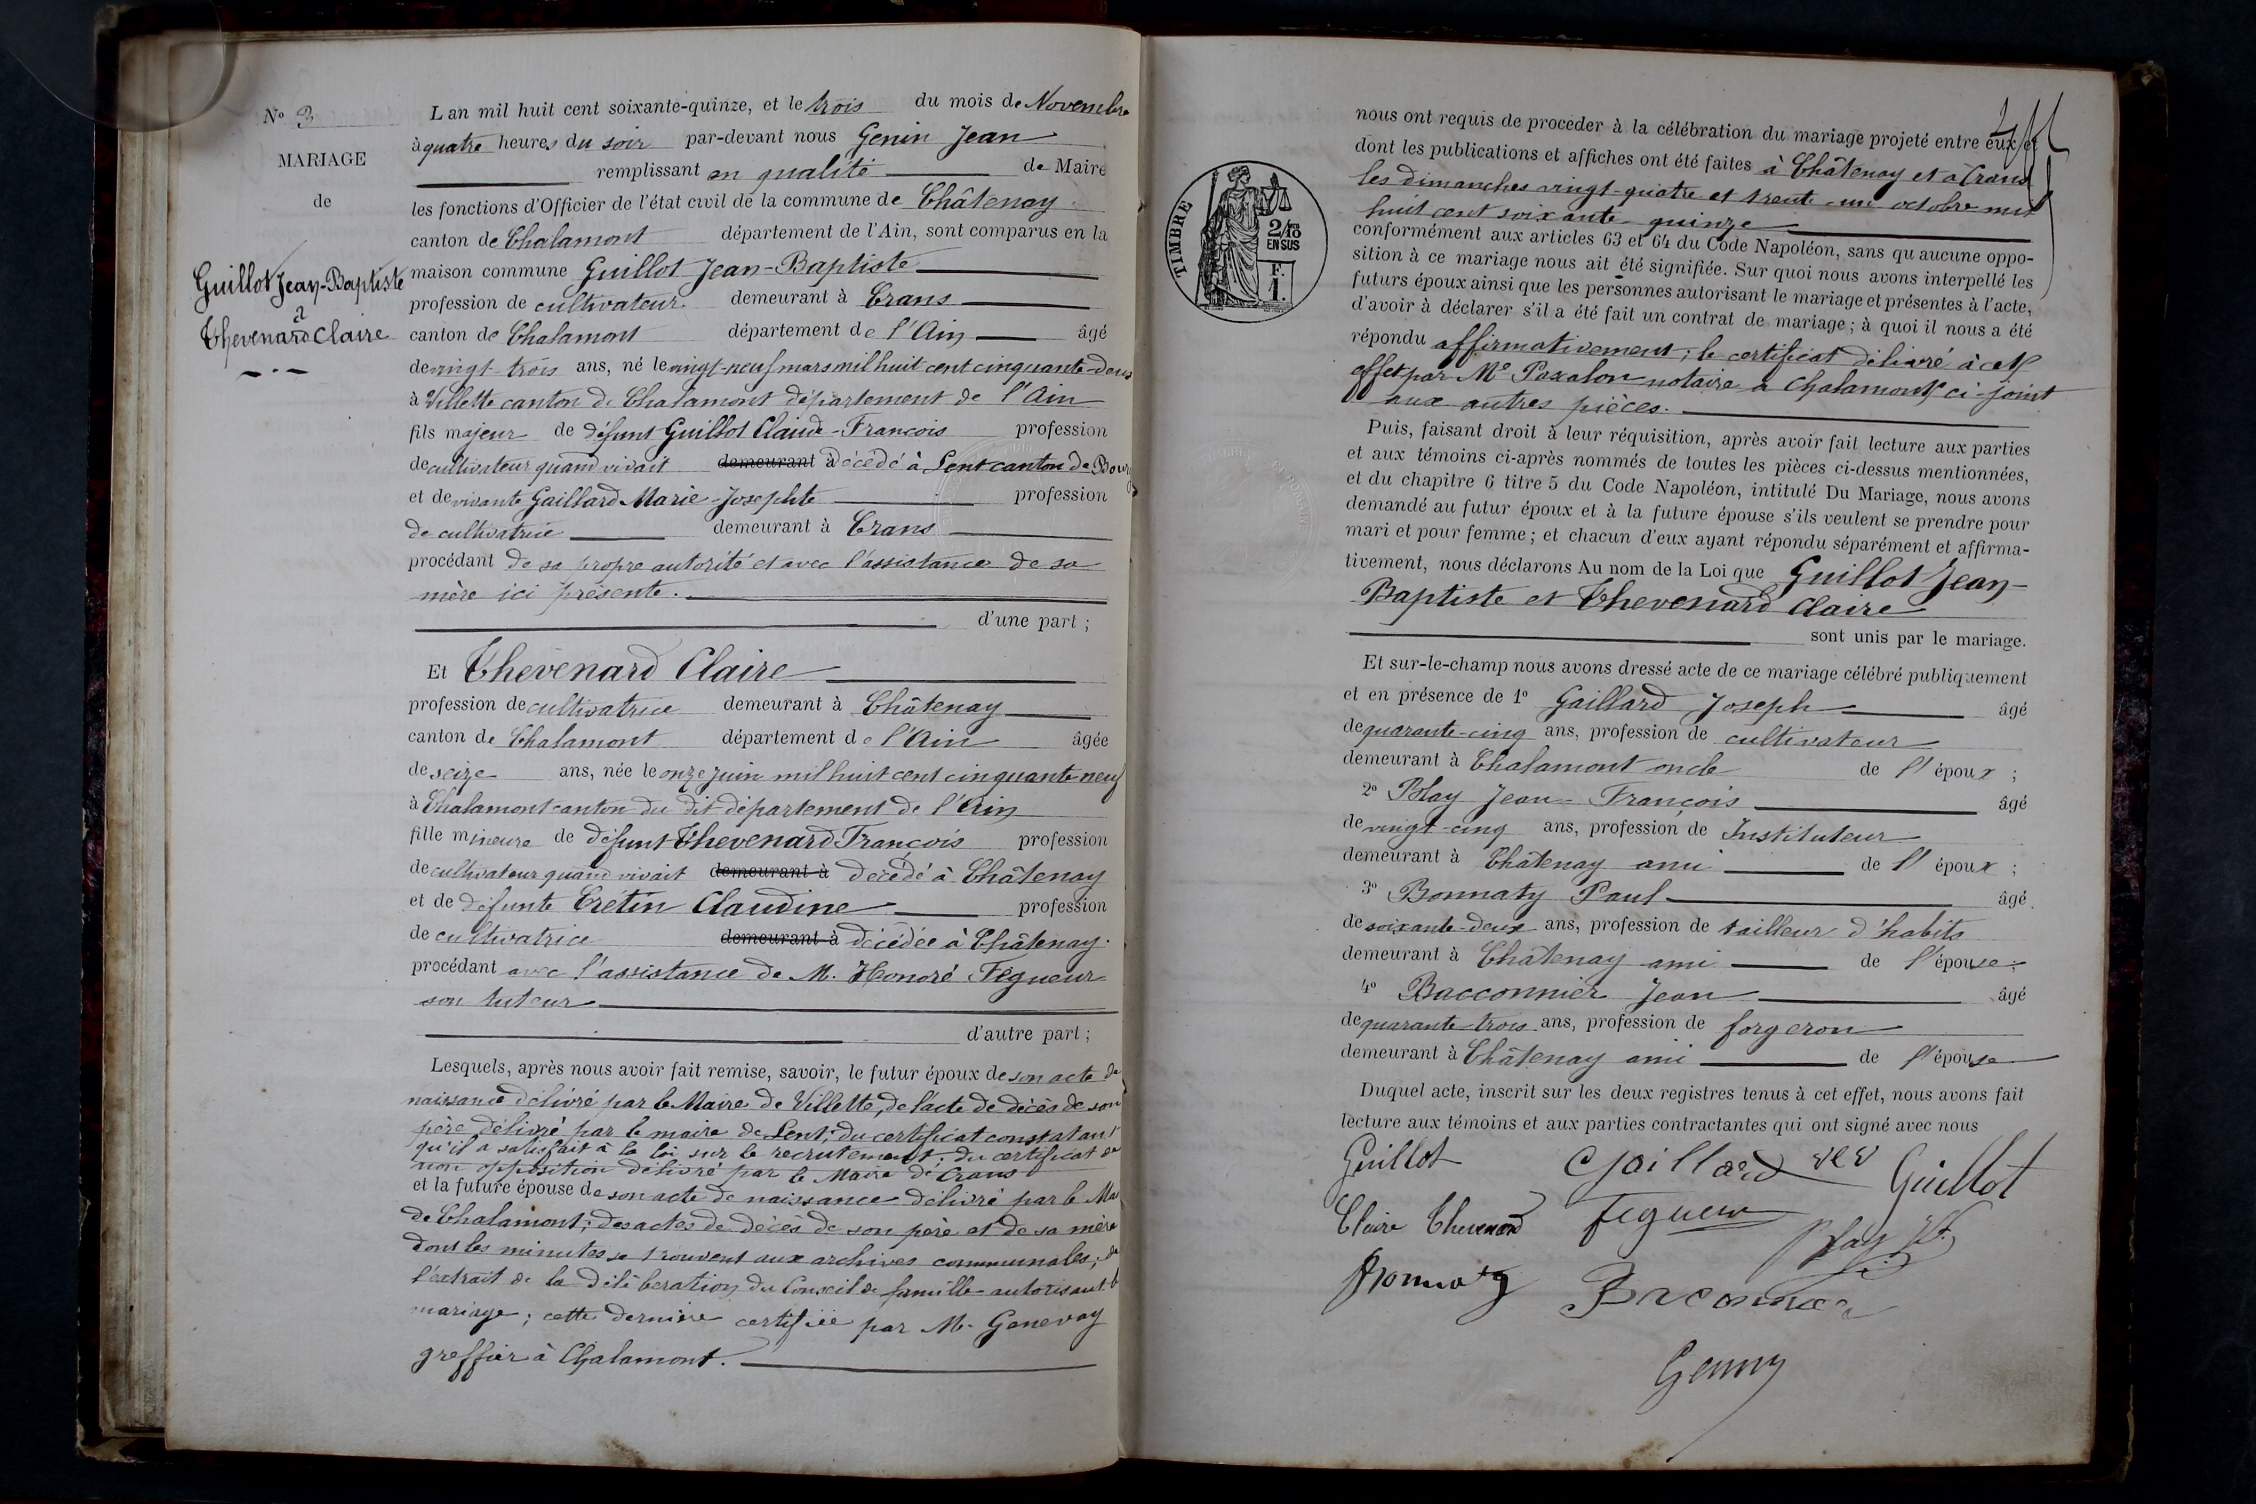 N° 3
MARIAGE
de
Guillot Jean-Baptiste
à
Thevenard Claire
L'an mil huit cent soixante-quinze, et le trois du mois de Novembre
à quatre heures du soir par-devant nous Genin Jean
remplissant en qualité de Maire
les fonctions d'Officier de l'état civil de la commune de Châtenay
canton de Chalamont département de l'Ain, sont comparus en la
maison commune Guillot Jean-Baptiste
profession de cultivateur demeurant à Crans
canton de Chalamont département de l'Ain âgé
de vingt-trois ans, né le vingt-neuf mars mil huit cent cinquante-deux
à Villette canton de Chalamont département de l'Ain
fils majeur de défunt Guillot Claude-François profession
de cultivateur quand vivait demeurant à décédé à Lent canton de Bourg
et de vivante Gaillard Marie-Josephte profession
de cultivatrice demeurant à Crans
procédant de sa propre autorité et avec l'assistance de sa
mère ici présente.
d'une part ;
Et Thevenard Claire
profession de cultivatrice demeurant à Châtenay
canton de Chalamont département de l'Ain âgée
de seize ans, née le onze juin mil huit cent cinquante-neuf
à Chalamont canton du dit département de l'Ain
fille mineure de défunt Thevenard François profession
de cultivateur quand vivait demeurant à décédé à Châtenay
et de défunte Crétin Claudine profession
de cultivatrice demeurant à décédée à Châtenay.
procédant avec l'assistance de M. Honoré Fégueur
son tuteur
d'autre part ;
Lesquels, après nous avoir fait remise, savoir, le futur époux de son acte de
naissance délivré par le Maire de Villette, de l'acte de décès de son
père délivré par le maire de Lent; du certificat constatant
qu'il a satisfait à la loi sur le recrutement; du certificat de
non opposition délivré par le Maire de Crans
et la future épouse de son acte de naissance délivré par le Ma
de Chalamont; des actes de décès de son père et de sa mère
dont les minutes se trouvent aux archives communales; de
l'extrait de la délibération du Conseil de famille autorisant le
mariage; cette dernière certifiée par M. Genevay
greffier à Chalamont.
TIMBRE
2/10 EN SUS
F. 1.
nous ont requis de procéder à la célébration du mariage projeté entre eux et
dont les publications et affiches ont été faites à Châtenay et à Crans
les dimanches vingt-quatre et trente-un octobre mil
huit cent soixante-quinze
conformément aux articles 63 et 64 du Code Napoléon, sans qu'aucune oppo-
sition à ce mariage nous ait été signifiée. Sur quoi nous avons interpellé les
futurs époux ainsi que les personnes autorisant le mariage et présentes à l'acte,
d'avoir à déclarer s'il a été fait un contrat de mariage ; à quoi il nous a été
répondu affirmativement; le certificat délivré à cet
effet par Me Paxalon notaire à Chalamont ci-joint
aux autres pièces.
Puis, faisant droit à leur réquisition, après avoir fait lecture aux parties
et aux témoins ci-après nommés de toutes les pièces ci-dessus mentionnées,
et du chapitre 6 titre 5 du Code Napoléon, intitulé Du Mariage, nous avons
demandé au futur époux et à la future épouse s'ils veulent se prendre pour
mari et pour femme ; et chacun d'eux ayant répondu séparément et affirma-
tivement, nous déclarons Au nom de la Loi que Guillot Jean-
Baptiste et Thevenard Claire
sont unis par le mariage.
Et sur-le-champ nous avons dressé acte de ce mariage célébré publiquement
et en présence de 1° Gaillard Joseph âgé
de quarante-cinq ans, profession de cultivateur
demeurant à Chalamont oncle de l'époux ;
2° Blay Jean-François âgé
de vingt-cinq ans, profession de Instituteur
demeurant à Châtenay ami de l'époux ;
3° Bonnaty Paul âgé
de soixante-deux ans, profession de tailleur d'habits
demeurant à Châtenay ami de l'épouse ;
4° Bacconnier Jean âgé
de quarante-trois ans, profession de forgeron
demeurant à Châtenay ami de l'épouse
Duquel acte, inscrit sur les deux registres tenus à cet effet, nous avons fait
lecture aux témoins et aux parties contractantes qui ont signé avec nous
Guillot Gaillard Guillot
Claire Thevenard Fegueur Blay
Bonnaty Bacconnier
Genin